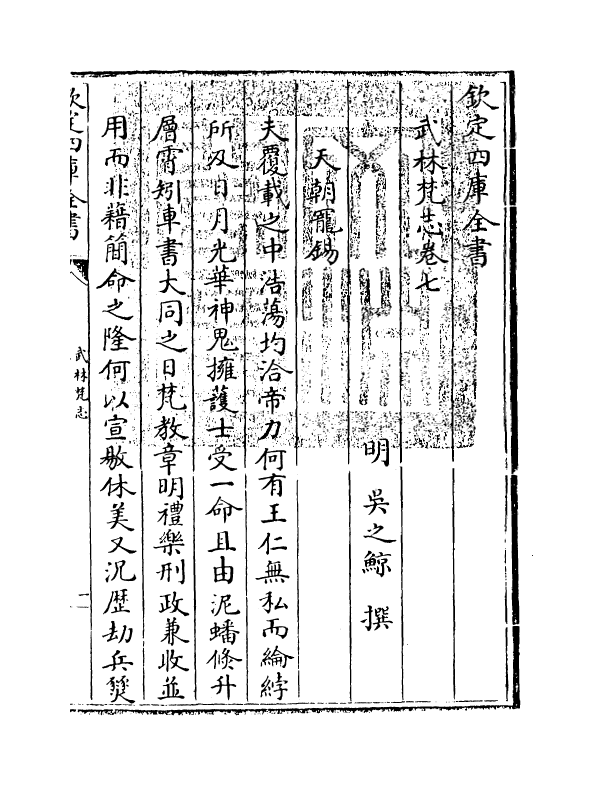 欽定四庫全書
武林梵志卷七
明 吳之鯨 撰
天朝寵錫
夫覆載之中浩蕩均洽帝力何有王仁無私而綸綍
所及日月光華神鬼擁護士受一命且由泥蟠倐升
層霄矧車書大同之日梵教章明禮樂刑政兼收並
用而非藉簡命之隆何以宣敭休美又況歷劫兵燹
欽定四庫全書
武林梵志